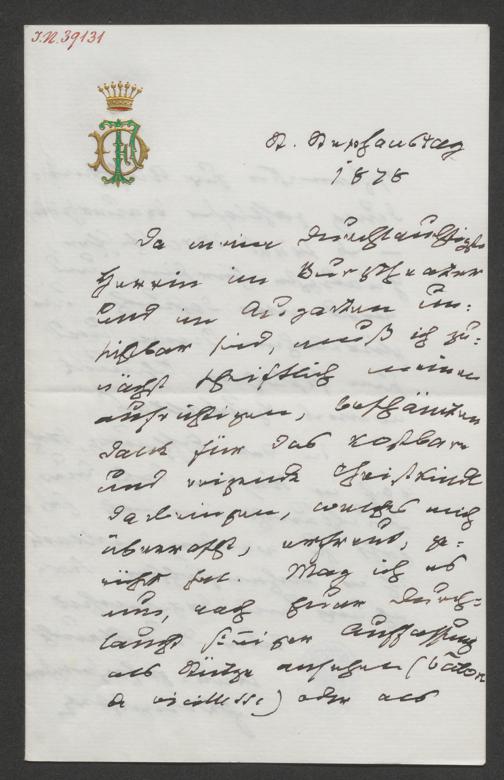 I.N. 39131
St. Stephanstag
1878
Da meine Durchlauchtigste
Herrin im Burgtheater
und im Augarten un-
sichtbar sind, muß ich zu-
nächst schriftlich meinen
aufrichtigen, beschämten
Dank für das kostbare
und reizende Christkindl
darbringen, welches mich
überrascht, erfreut, ge-
rührt hat. Mag ich es
nun, nach Eurer Durch-
laucht Auffassung
als Stütze ansehen (bâton
de vieillesse) oder als